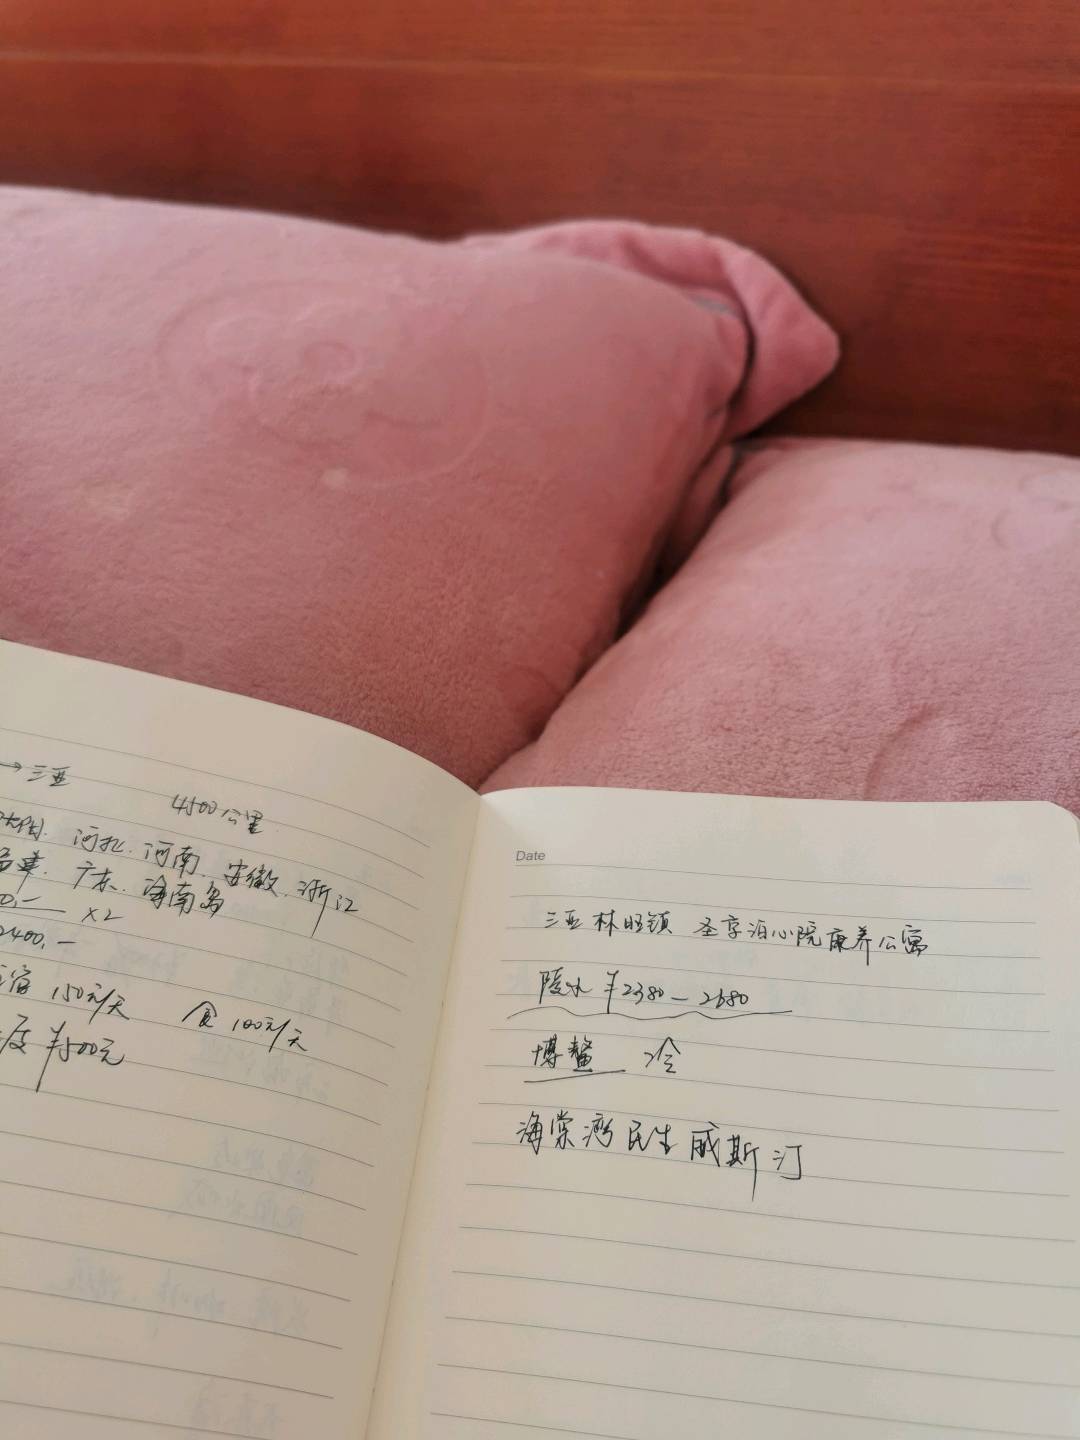 →三亚
4500公里
河北.河南.安徽.浙江
福建.广东.海南岛
0.— ×2
2400.—
宿 150元/天 食 100元/天
度 ¥500元
Date
三亚林旺镇 圣享泊心院康养公寓
陵水 ¥2380—2680
博鳌 冷
海棠湾民生威斯汀